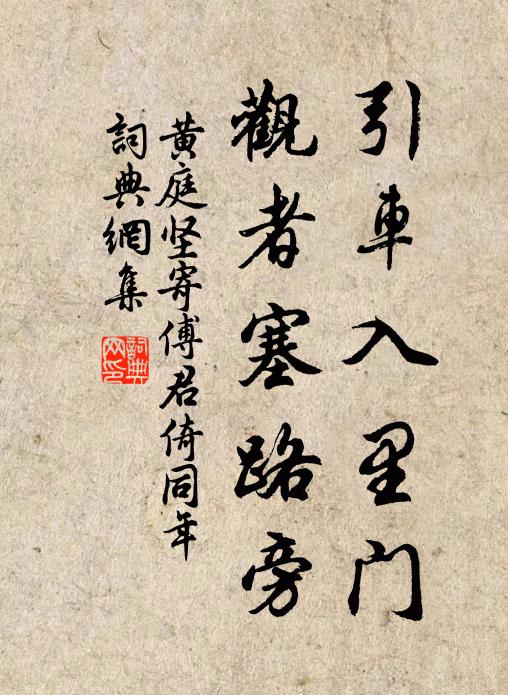 引車入里門
觀者塞路旁
黄庭坚寄傅君倚同年
詞典網集
詞典
网印